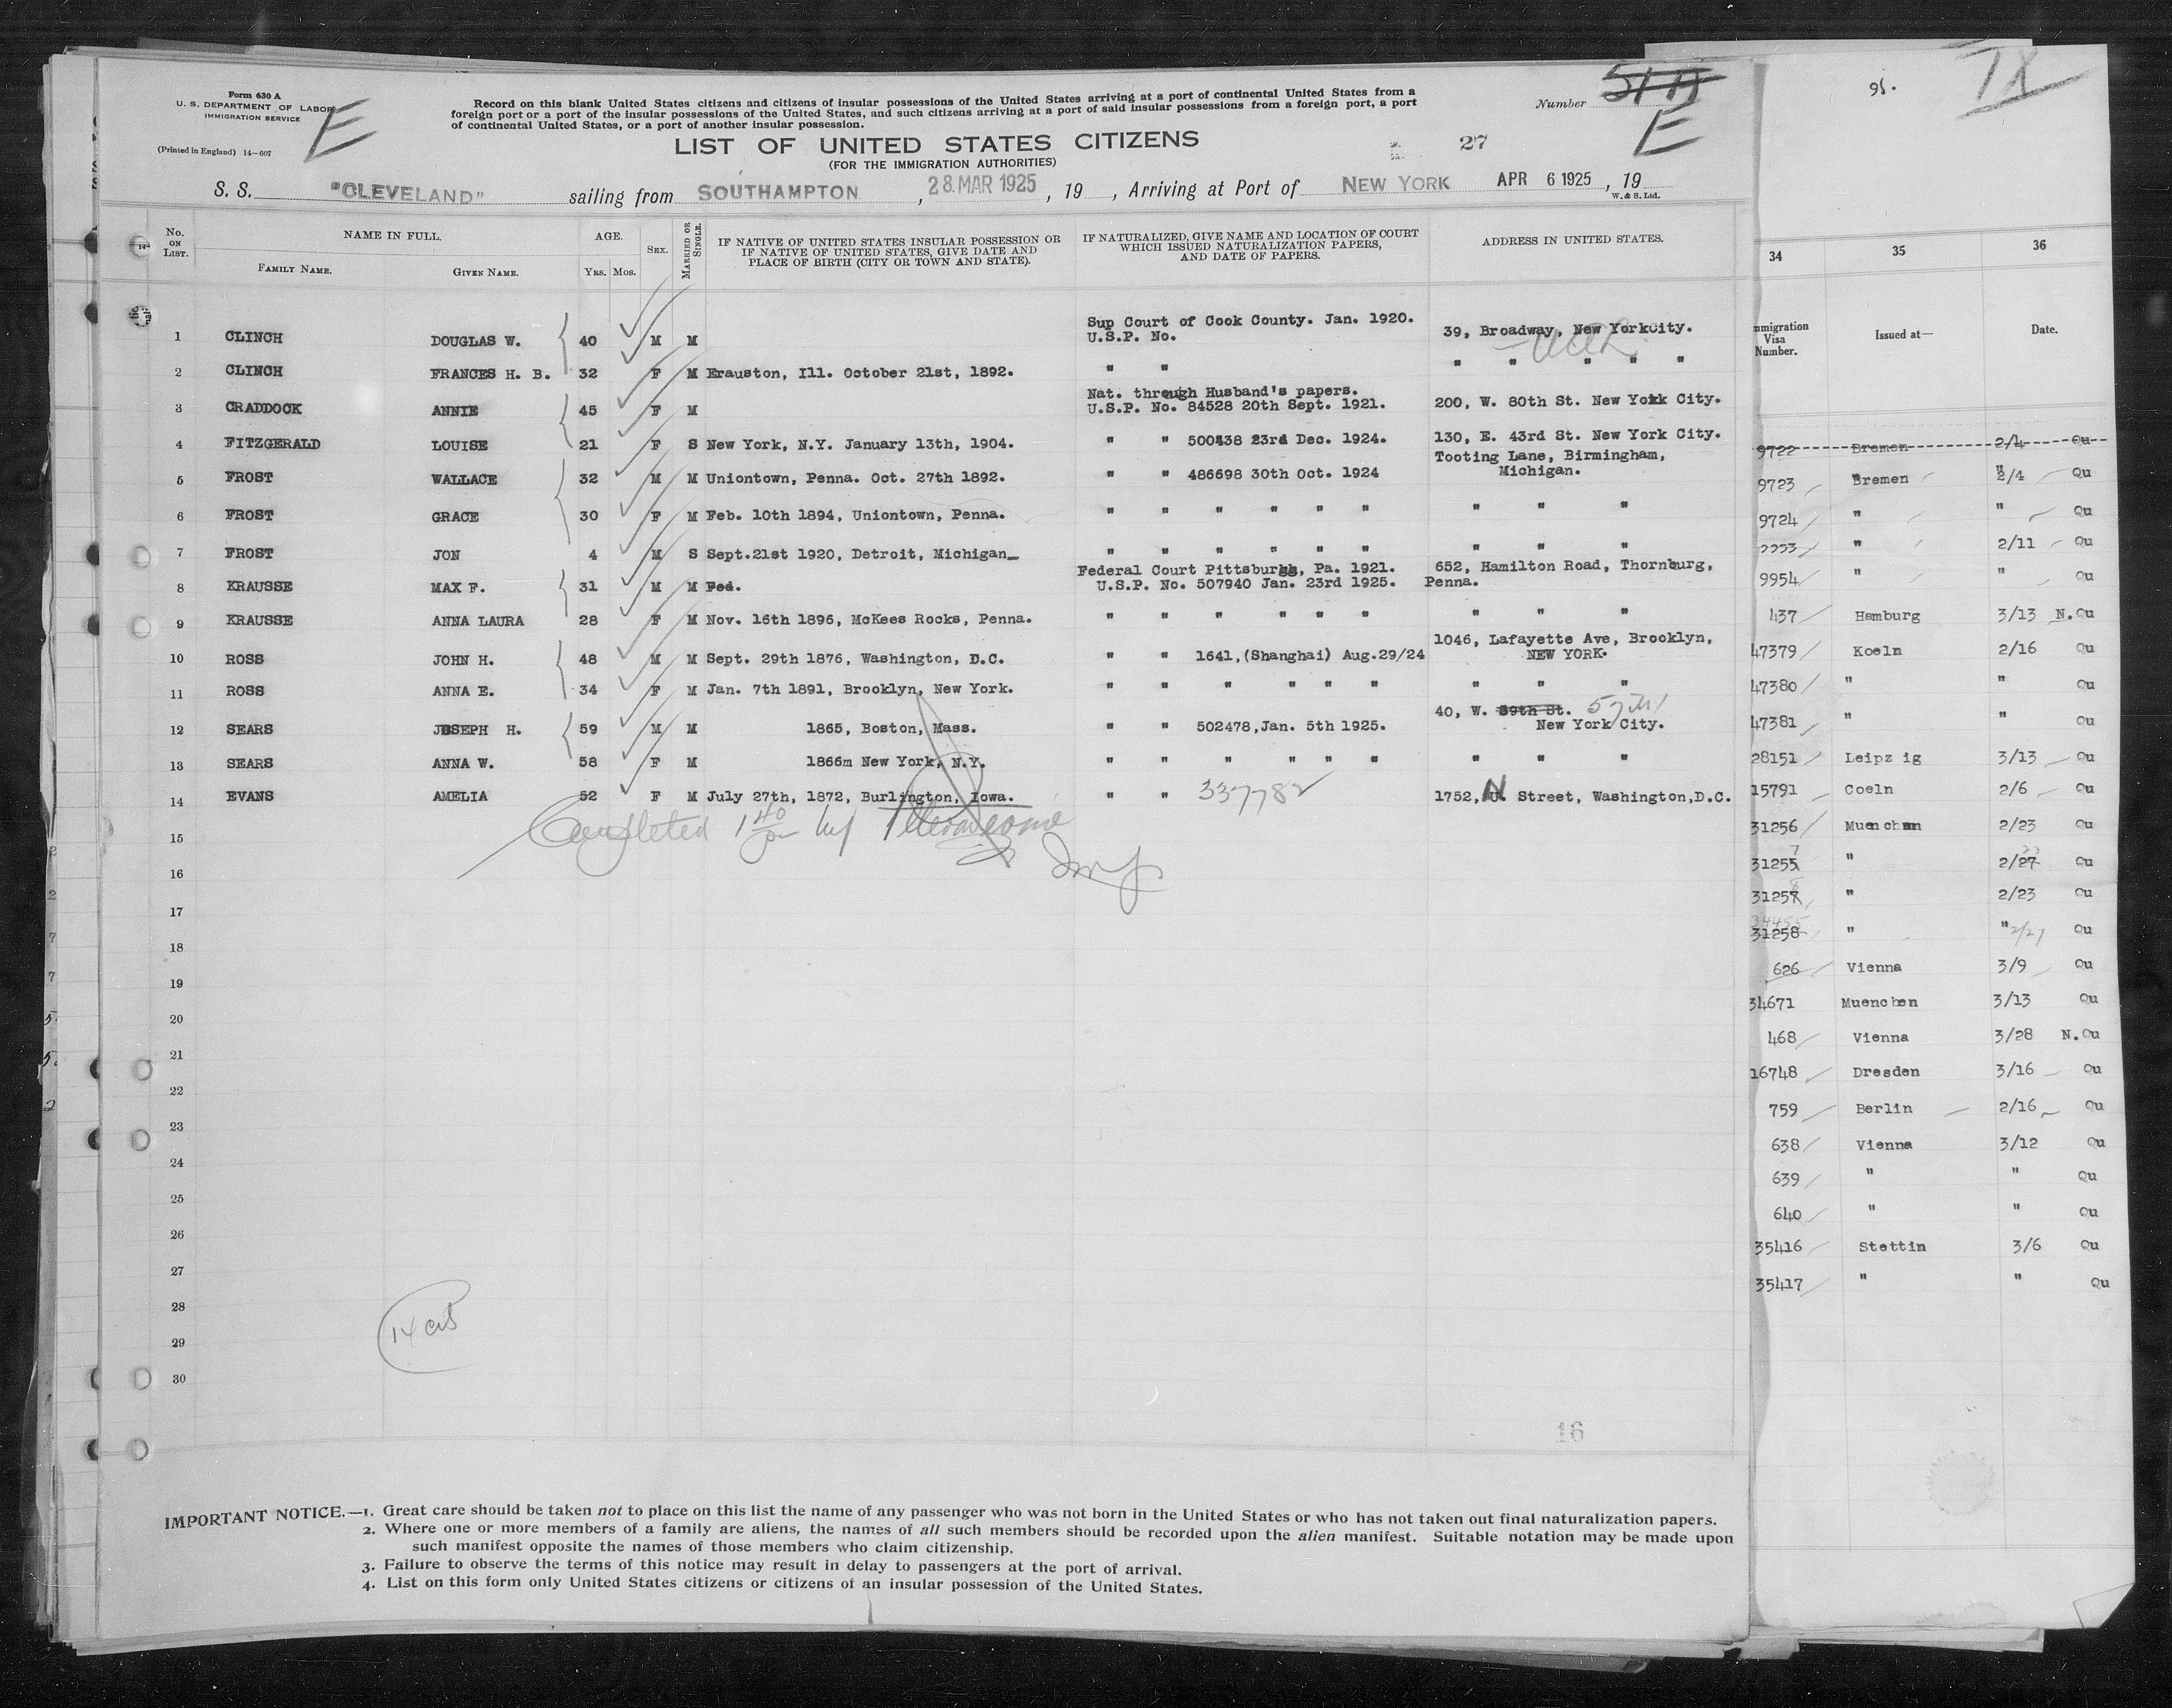 Form 630 A
U. S. DEPARTMENT OF LABOR
IMMIGRATION SERVICE
(Printed in England) 14—607
E
Record on this blank United States citizens and citizens of insular possessions of the United States arriving at a port of continental United States from a
foreign port or a port of the insular possessions of the United States, and such citizens arriving at a port of said insular possessions from a foreign port, a port
of continental United States, or a port of another insular possession.
Number
E
LIST OF UNITED STATES CITIZENS
(FOR THE IMMIGRATION AUTHORITIES)
27
S. S. "CLEVELAND" sailing from SOUTHAMPTON, 28.MAR 1925, 19 , Arriving at Port of NEW YORK APR 6 1925, 19
W. & S. Ltd.
No. ON LIST. NAME IN FULL. FAMILY NAME. GIVEN NAME. AGE. YRS. MOS. SEX. MARRIED OR SINGLE. IF NATIVE OF UNITED STATES INSULAR POSSESSION OR IF NATIVE OF UNITED STATES, GIVE DATE AND PLACE OF BIRTH (CITY OR TOWN AND STATE). IF NATURALIZED, GIVE NAME AND LOCATION OF COURT WHICH ISSUED NATURALIZATION PAPERS, AND DATE OF PAPERS. ADDRESS IN UNITED STATES.
Sup Court of Cook County. Jan. 1920.
1 CLINCH DOUGLAS W. 40 M M U.S.P. No. 39, Broadway, New YorkCity.
2 CLINCH FRANCES H. B. 32 F M Erauston, Ill. October 21st, 1892. " " " " " " "
Nat. through Husband's papers.
3 CRADDOCK ANNIE 45 F M U.S.P. No. 84528 20th Sept. 1921. 200, W. 80th St. New York City.
4 FITZGERALD LOUISE 21 F S New York, N.Y. January 13th, 1904. " " 500438 23rd Dec. 1924. 130, E. 43rd St. New York City.
Tooting Lane, Birmingham,
5 FROST WALLACE 32 M M Uniontown, Penna. Oct. 27th 1892. " " 486698 30th Oct. 1924 Michigan.
6 FROST GRACE 30 F M Feb. 10th 1894, Uniontown, Penna. " " " " " " " " "
7 FROST JON 4 M S Sept.21st 1920, Detroit, Michigan " " " " " " " " "
Federal Court Pittsburgh, Pa. 1921. 652, Hamilton Road, Thornburg,
8 KRAUSSE MAX F. 31 M M Fed. U.S.P. No. 507940 Jan. 23rd 1925. Penna.
9 KRAUSSE ANNA LAURA 28 F M Nov. 16th 1896, McKees Rocks, Penna. " " " " " " " " "
1046, Lafayette Ave, Brooklyn,
10 ROSS JOHN H. 48 M M Sept. 29th 1876, Washington, D.C. " " 1641,(Shanghai) Aug.29/24 NEW YORK.
11 ROSS ANNA E. 34 F M Jan. 7th 1891, Brooklyn, New York. " " " " " " " " "
40, W. 89th St.
12 SEARS JOSEPH H. 59 M M 1865, Boston, Mass. " " 502478,Jan. 5th 1925. New York City.
13 SEARS ANNA W. 58 F M 1866m New York, N.Y. " " " " " " " " "
14 EVANS AMELIA 52 F M July 27th, 1872, Burlington, Iowa. " " 337782 1752, N Street, Washington,D.C.
Completed by
15
16
17
18
19
20
21
22
23
24
25
26
27
28
29
30
16
IMPORTANT NOTICE.—1. Great care should be taken not to place on this list the name of any passenger who was not born in the United States or who has not taken out final naturalization papers.
2. Where one or more members of a family are aliens, the names of all such members should be recorded upon the alien manifest. Suitable notation may be made upon
such manifest opposite the names of those members who claim citizenship.
3. Failure to observe the terms of this notice may result in delay to passengers at the port of arrival.
4. List on this form only United States citizens or citizens of an insular possession of the United States.
95.
34 35 36
mmigration Visa Number. Issued at— Date.
9722 Bremen 2/4 Qu
9723 Bremen 2/4 Qu
9724 " " Qu
9953 " 2/11 Qu
9954 " " Qu
437 Hamburg 3/13 N.Qu
47379 Koeln 2/16 Qu
47380 " " Qu
47381 " " Qu
28151 Leipz ig 3/13 Qu
15791 Coeln 2/6 Qu
31256 Muenchen 2/23 Qu
31255 " 2/27 Qu
31257 " 2/23 Qu
31258 " " 2/27 Qu
626 Vienna 3/9 Qu
34671 Muenchen 3/13 Qu
468 Vienna 3/28 N.Qu
16748 Dresden 3/16 Qu
759 Berlin 2/16 Qu
638 Vienna 3/12 Qu
639 " " Qu
640 " " Qu
35416 Stettin 3/6 Qu
35417 " " Qu